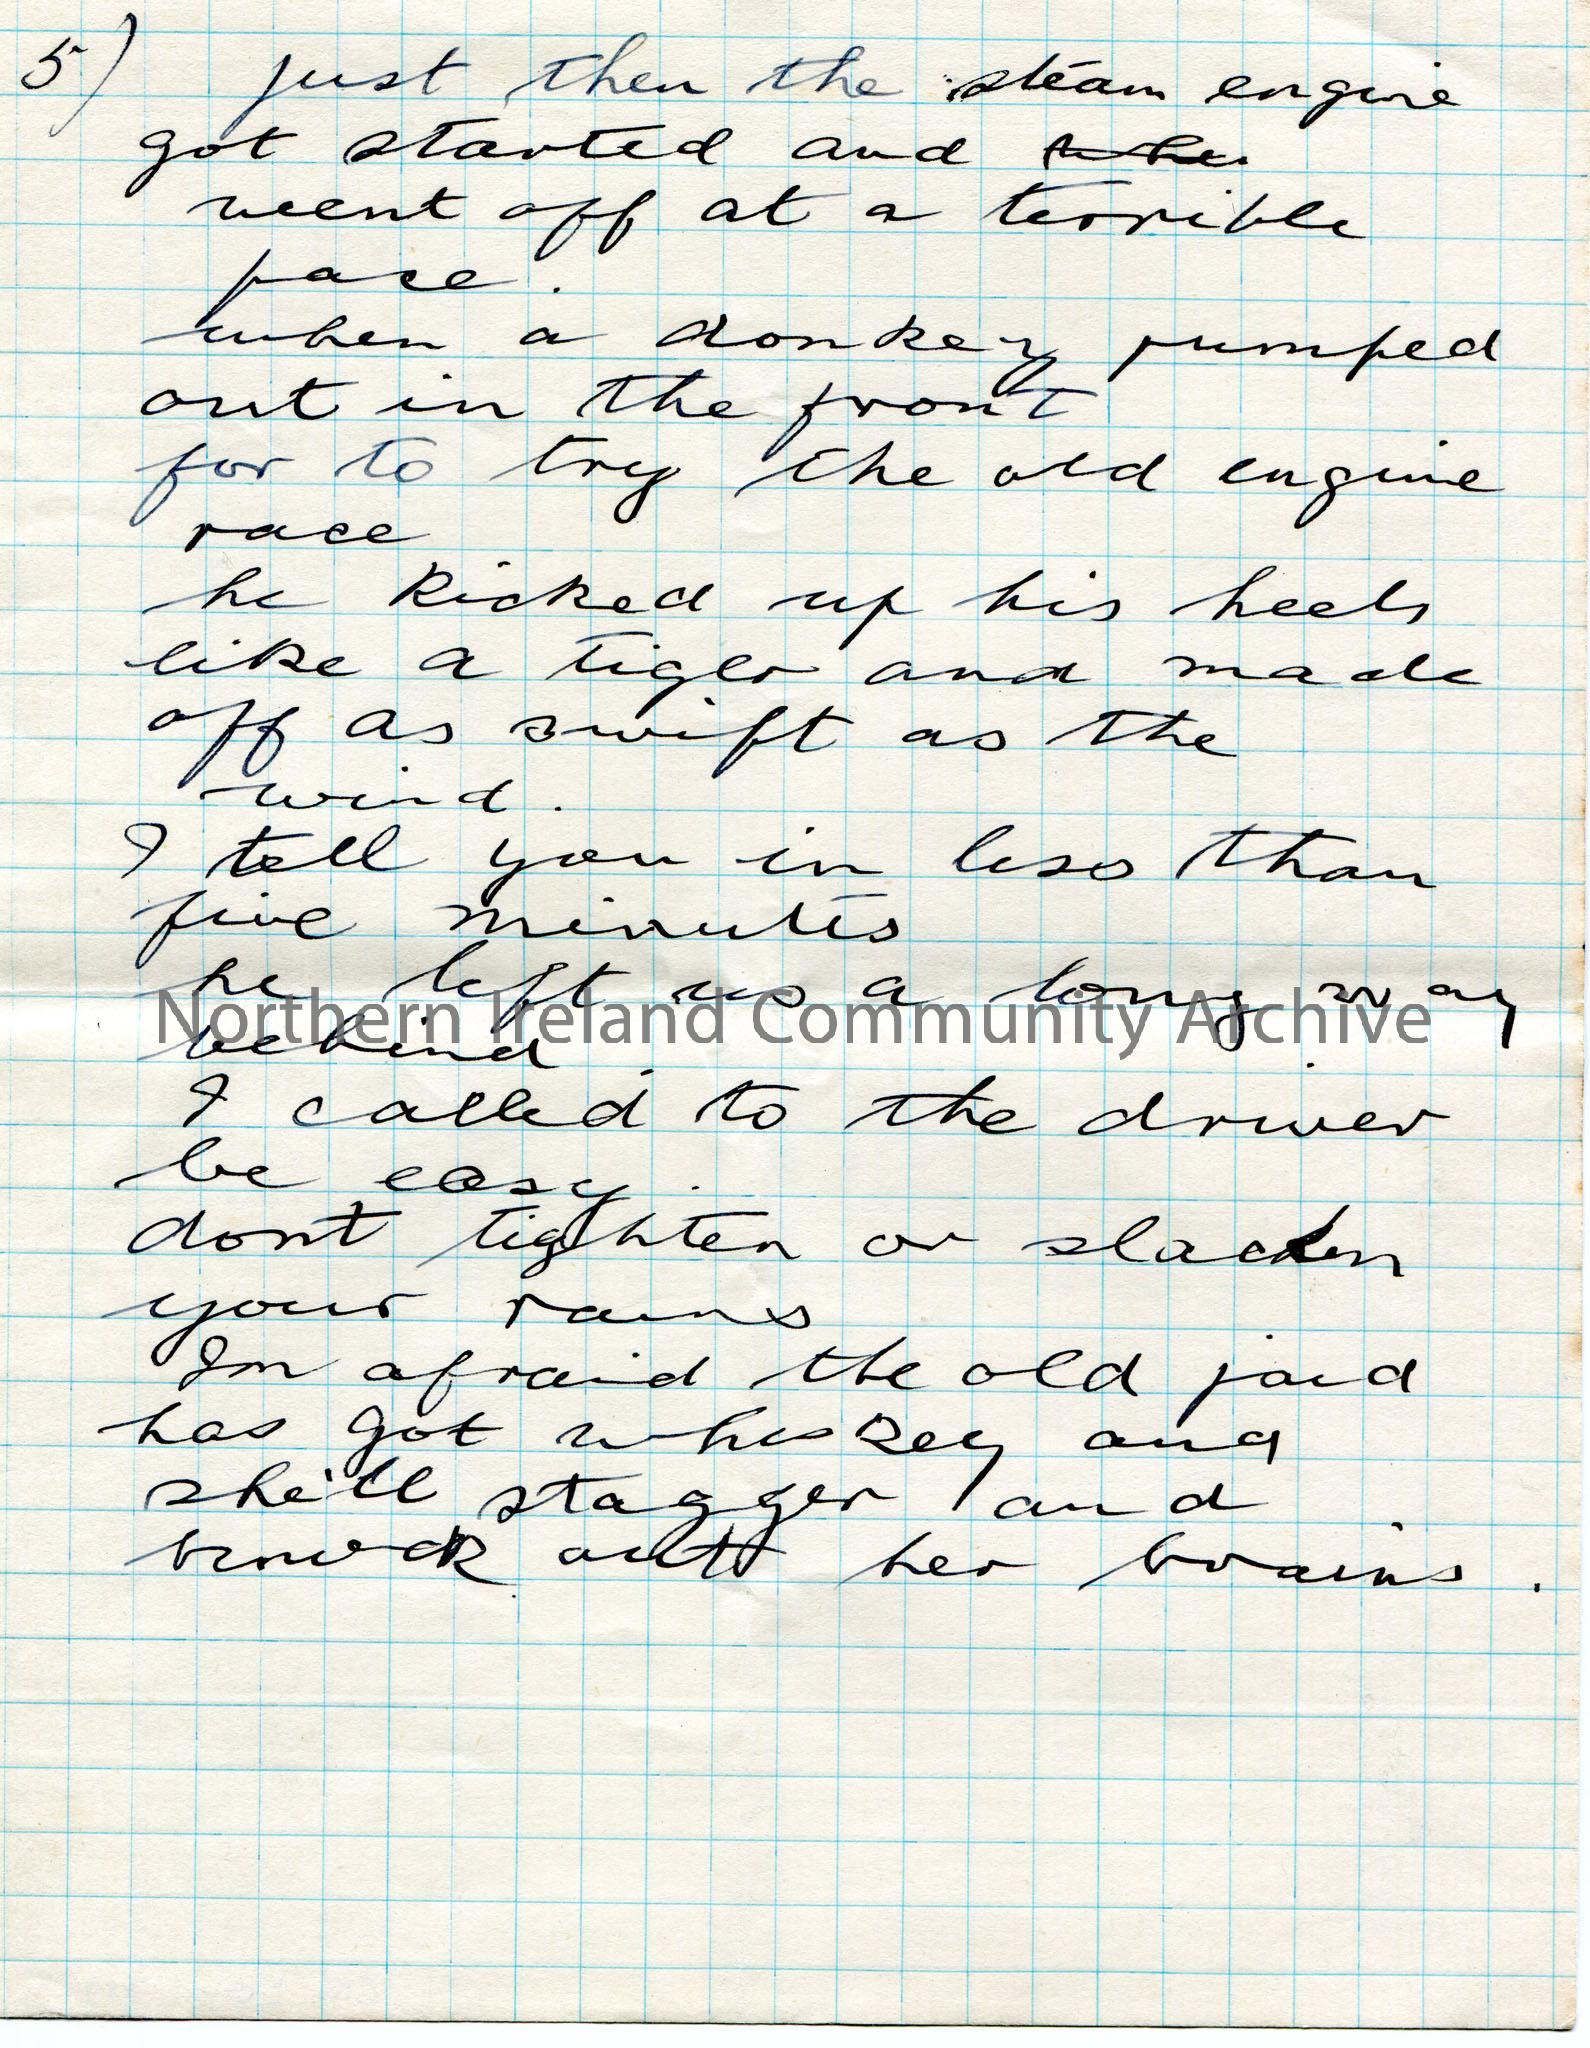 5) just then the steam engine
got started and
went off at a terrible
pace.
when a donkey jumped
out in the front
for to try the old engine
race
he kicked up his heels
like a tiger and made
off as swift as the
wind.
I tell you in less than
five minutes
he left us a long way
Northern Ireland Community Archive
behind.
I called to the driver
be easy.
dont tighten or slacken
your rains
Im afraid the old jaid
has got whiskey and
she'll stagger and
knock out her brains.